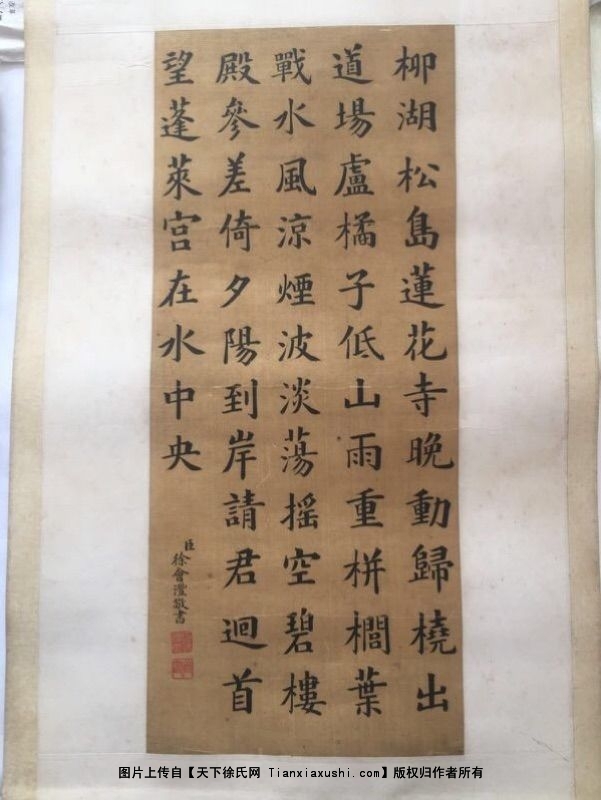 柳湖松島蓮花寺晚動歸橈出
道場盧橘子低山雨重栟櫚葉
戰水風涼煙波淡蕩搖空碧樓
殿參差倚夕陽到岸請君迴首
望蓬萊宮在水中央
臣徐會灃敬書
图片上传自【天下徐氏网 Tianxiaxushi.com】版权归作者所有